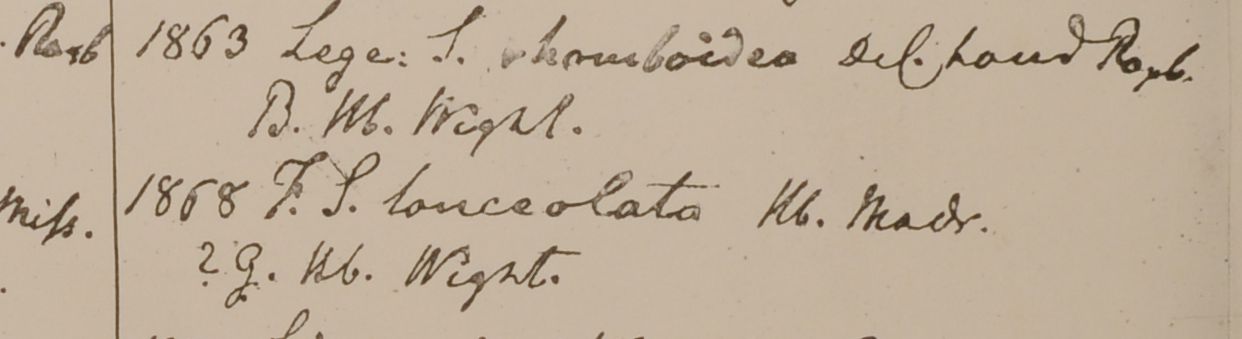 Roxb 1863 Lege: S. rhomboidea del. haud Roxb.
B. Hb. Wight.
Miss. 1868 F. S. lanceolata Hb. Madr.
? G. Hb. Wight.